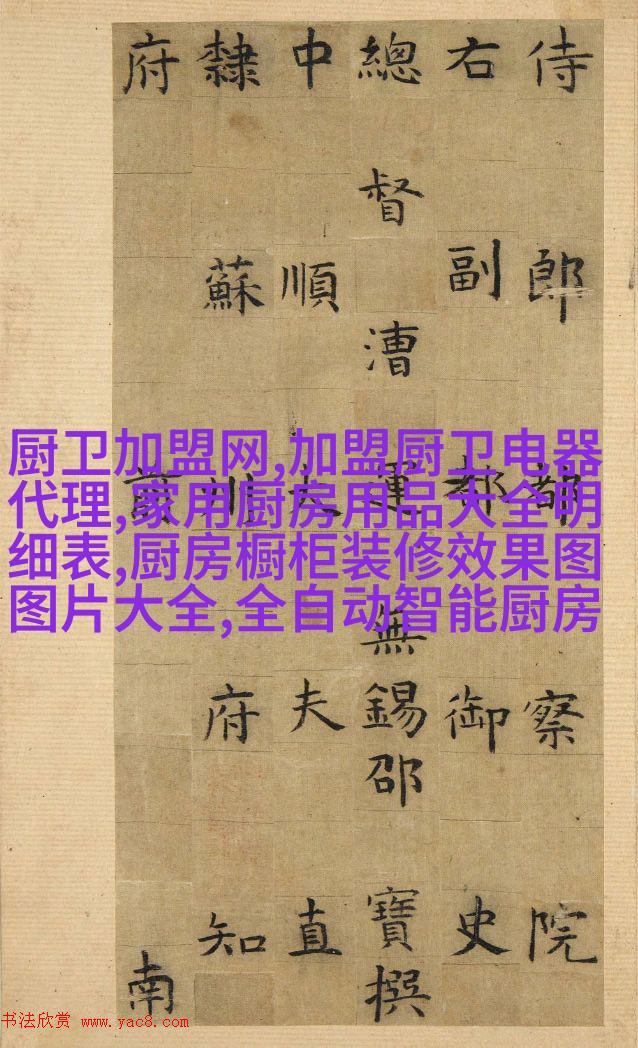 侍郎都察院
右副都御史
總督漕運無錫邵寶撰
中順大夫直
隸蘇州府知
府前南
厨卫加盟网,加盟厨卫电器
代理,家用厨房用品大全明
细表,厨房橱柜装修效果图
图片大全,全自动智能厨房
书法欣赏 www.yac8.com